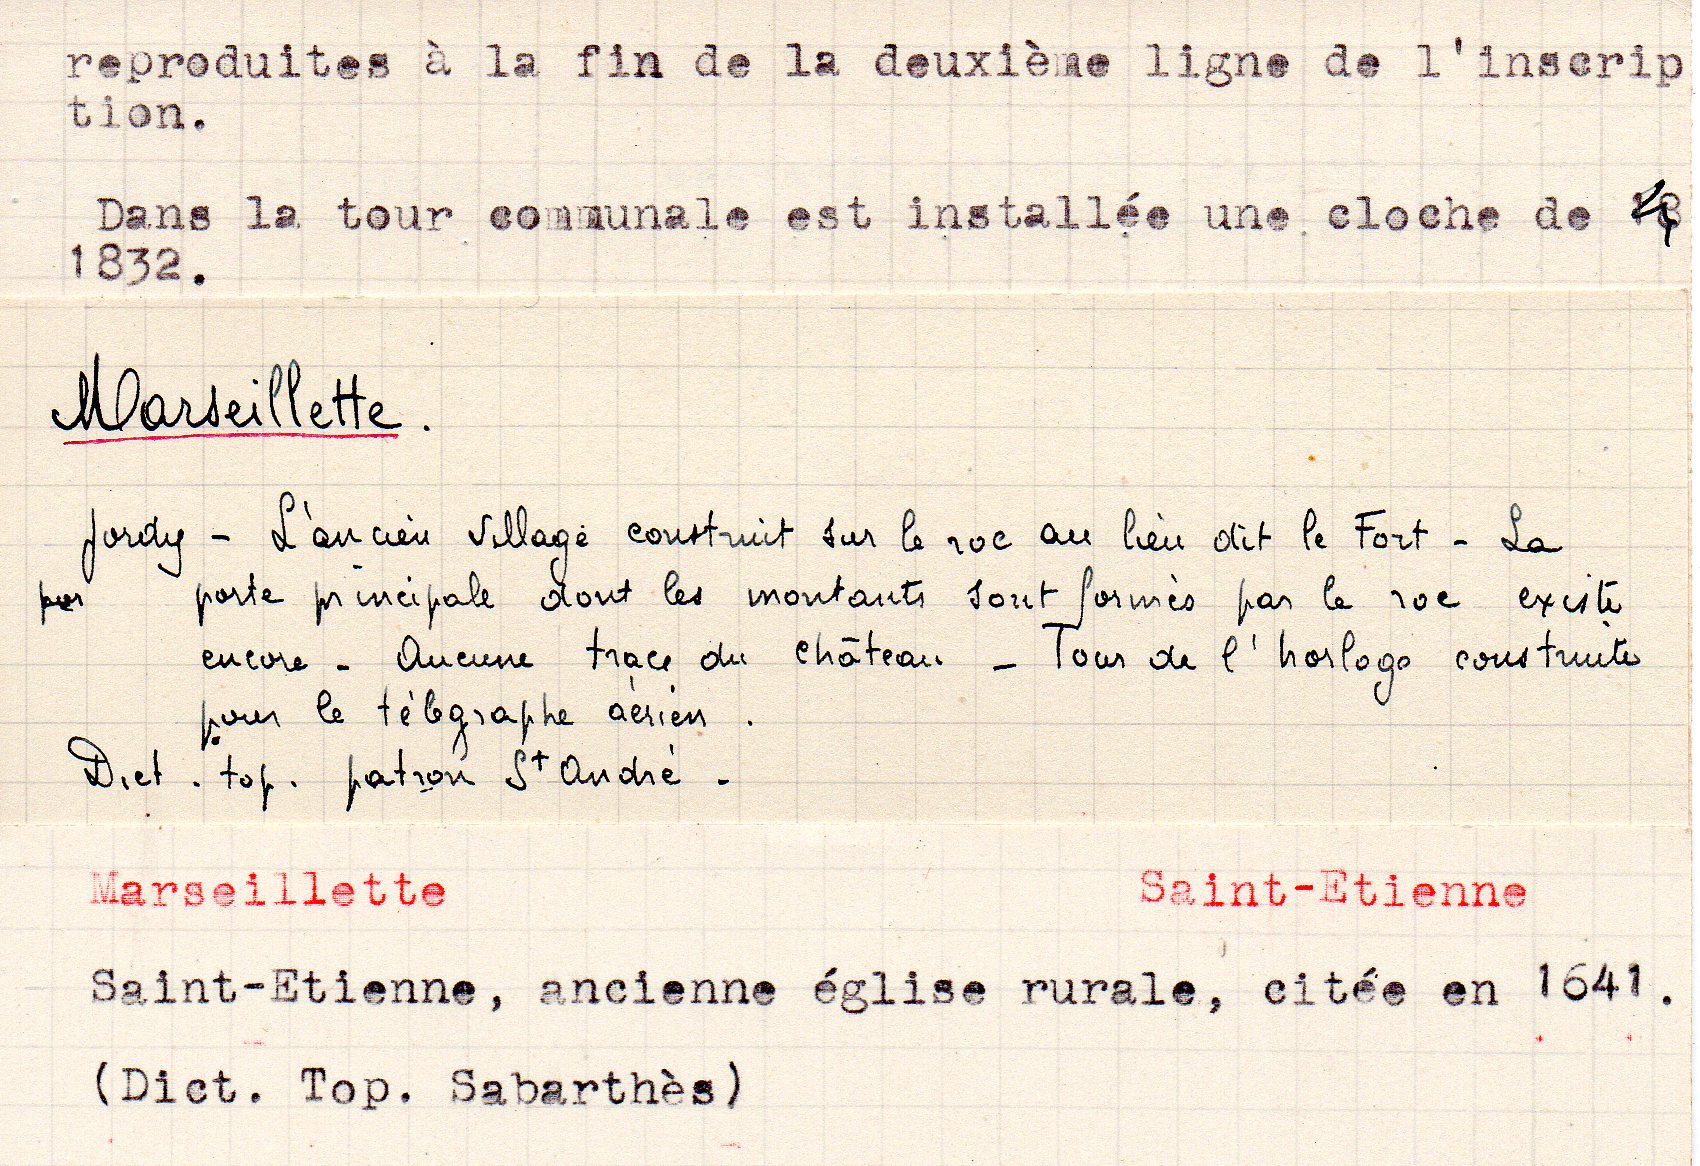 reproduites à la fin de la deuxième ligne de l'inscrip
tion.
Dans la tour communale est installée une cloche de
1832.
Marseillette.
Jordy - L'ancien village construit sur le roc au lieu dit le Fort - La
porte principale dont les montants sont formés par le roc existe
encore - Aucune trace du château - Tour de l'horloge construite
pour le télégraphe aérien.
Dict. top. patron St André -
Marseillette Saint-Etienne
Saint-Etienne, ancienne église rurale, citée en 1641.
(Dict. Top. Sabarthès)